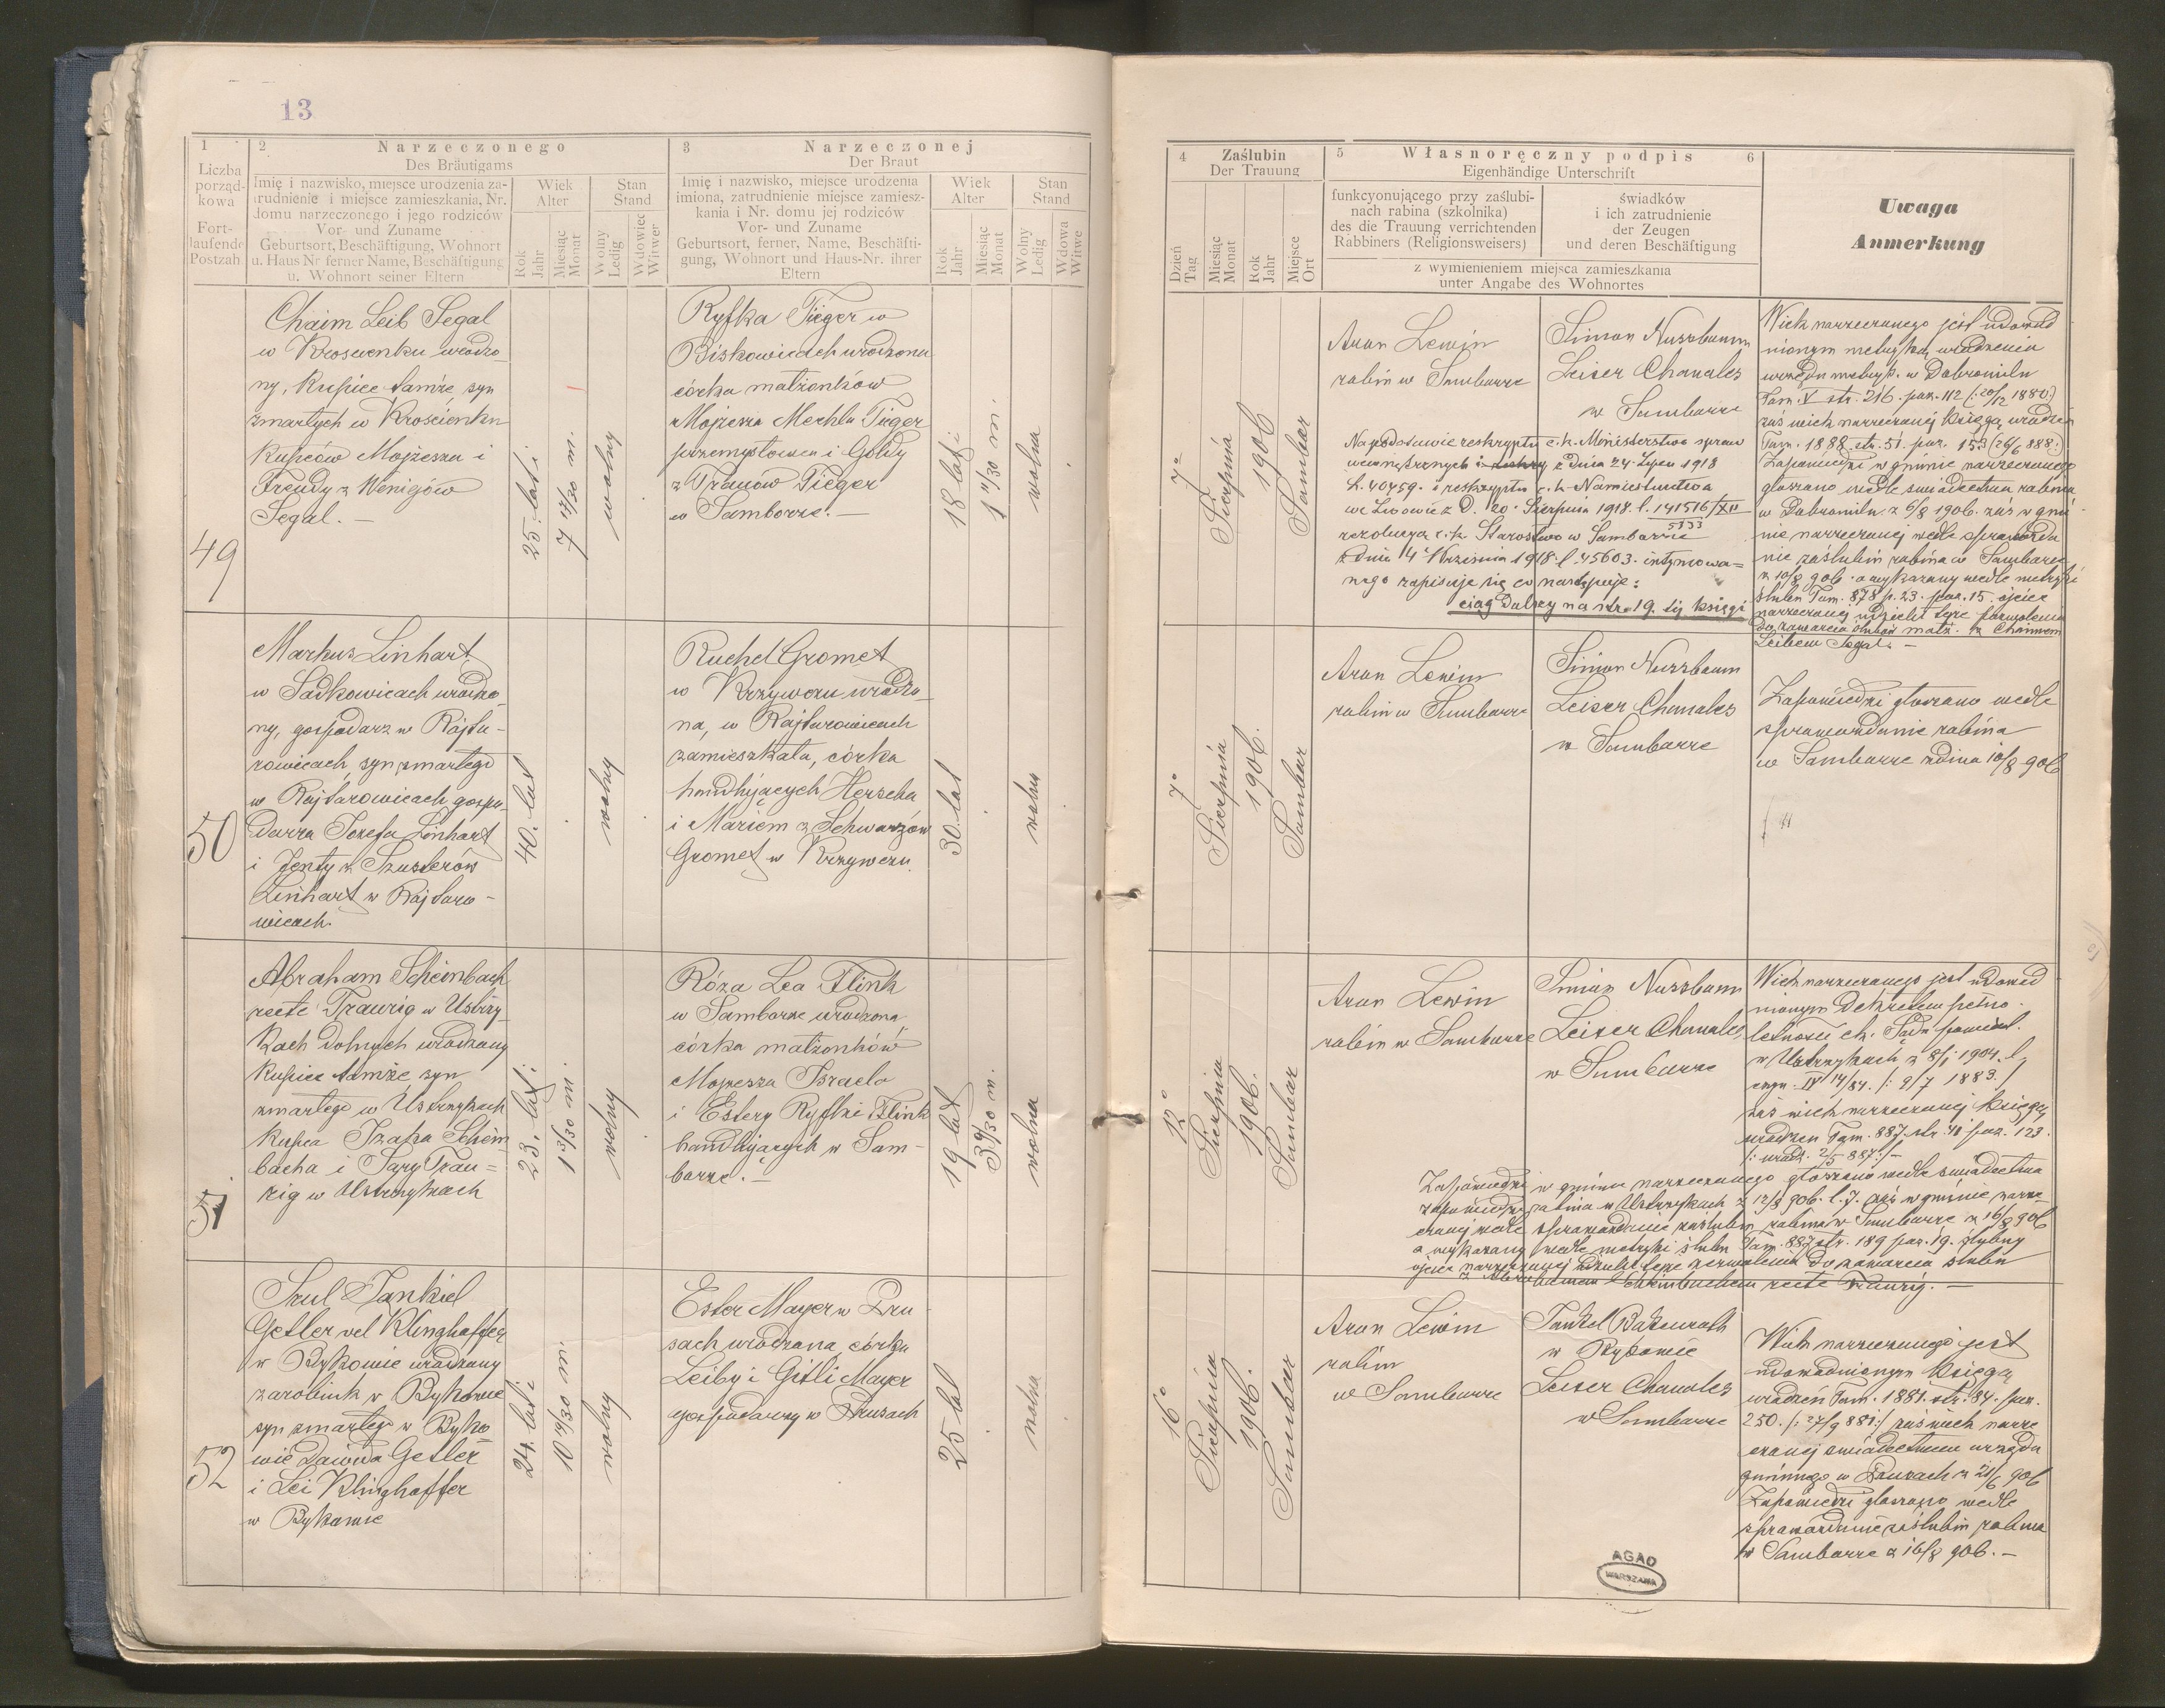 13
1
Liczba
porząd-
kowa
Fort-
laufende
Postzah
2
Narzeczonego
Des Bräutigams
Imię i nazwisko, miejsce urodzenia za-
trudnienie i miejsce zamieszkania, Nr.
domu narzeczonego i jego rodziców
Vor- und Zuname
Geburtsort, Beschäftigung, Wohnort
u. Haus Nr ferner Name, Beschäftigung
u. Wohnort seiner Eltern
Wiek
Alter
Rok
Jahr
Miesiąc
Monat
Stan
Stand
Wolny
Ledig
Wdowiec
Witwer
3
Narzeczonej
Der Braut
Imię i nazwisko, miejsce urodzenia
imiona, zatrudnienie miejsce zamiesz-
kania i Nr. domu jej rodziców
Vor- und Zuname
Geburtsort, ferner, Name, Beschäfti-
gung, Wohnort und Haus-Nr. ihrer
Eltern
Wiek
Alter
Rok
Jahr
Miesiąc
Monat
Stan
Stand
Wolny
Ledig
Wdowa
Witwe
4
Zaślubin
Der Trauung
Dzień
Tag
Miesiąc
Monat
Rok
Jahr
Miejsce
Ort
5
Własnoręczny podpis
6
Eigenhändige Unterschrift
funkcyonującego przy zaślubi-
nach rabina (szkolnika)
des die Trauung verrichtenden
Rabbiners (Religionsweisers)
świadków
i ich zatrudnienie
der Zeugen
und deren Beschäftigung
z wymienieniem miejsca zamieszkania
unter Angabe des Wohnortes
Uwaga
Anmerkung
49
Chaim Leib Segal
w Kroscienku urodzo-
ny, kupiec tamże, syn
zmarłych w Krościenku
kupców Mojżesza i
Freudy z Wenigów
Segal. —
25. lat i
7 17/30 m.
wolny
Ryfka Tieger w
Biskowicach urodzona
córka małżonków
Mojżesza Mechla Tieger
przemysłowca i Goldy
z Trauów Tieger
w Samborze. —
18 lat i
1 11/30 m.
wolna
7°
Sierpnia
1906
Sambor
Aron Lewin
rabin w Samborze
Simon Nussbaum
Leiser Chanales
w Samborze
Na podstawie reskryptu c. k. Ministerstwa spraw
wewnętrznych z dnia 24. Lipca 1918
L. 40459. i reskryptu c. k. Namiestnictwa
we Lwowie z D. 20. Sierpnia 1918. l. 141516/XII
5133
rezolucyą c. k. Starostwo w Samborze
z dnia 4 Września 1918. l. 45603. intymowa=
nego zapisuje się co następuje:
ciąg dalszy na str. 19. tej księgi
Wiek narzeczonego jest udowod
nionym metryką urodzenia
urzędu metryk. w Dobromilu
Tom. V str. 216. poz. 112 (: 20/12 1880:)
zaś wiek narzeczonej księgą urodzeń
Tom. 1888. str. 51. poz. 153 (26/6 888:)
Zapowiedzi w gminie narzeczonego
głoszono wedle świadectwa rabina
w Dobromilu z 6/8 1906. zaś w gmi-
nie narzeczonej wedle sprawozda
nie zaślubin rabina w Samborze
z 10/8 906. a wykazany wedle metryki
ślubu Tom. 878 p. 23. poz. 15. ojciec
narzeczonej udzielił tejże pozwolenia
do zawarcia ślubów małż. z Chaimem
Leibem Segal. —
50
Markus Linhart
w Sadkowicach urodzo
ny, gospodarz w Rajta-
rowicach, syn zmarłego
w Rajtarowicach gospo-
darza Józefa Linhart
i Jenty z Szusterów
Linhart w Rajtaro-
wicach.
40. lat
wolny
Ruchel Gromet
w Krzywczu urodzo-
na, w Rajtarowicach
zamieszkała, córka
handlujących Herscha
i Mariem z Schwarzów
Gromet w Krzywczu
30. lat
wolna
7°
Sierpnia
1906.
Sambor
Aron Lewin
rabin w Samborze
Simon Nussbaum
Leiser Chanales
w Samborze
Zapowiedzi głoszono wedle
sprawozdanie rabina
w Samborze zdnia 10/8 906
51
Abraham Scheinbach
recte Traurig w Ustrzy-
kach dolnych urodzony
kupiec tamże syn
zmarłego w Ustrzykach
kupca Izaka Schein
bacha i Sary Trau=
rig w Ustrzykach
23. lat i
1 3/30 m.
wolny
Róża Lea Flink
w Samborze urodzona
córka małżonków
Mojżesza Israela
i Estery Ryfki Flink
handlujących w Sam-
borze. —
19 lat
wolna
12°
Sierpnia
1906.
Sambor
Aron Lewin
rabin w Samborze
Simon Nussbaum
Leiser Chanales
w Samborze
Wiek narzeczonego jest udowod
nionym dekretem pełno-
letności ck. Sądu powiat.
w Ustrzykach z 8/1 1904. l.
czyn. IV 14/84. /: 9/7 1883. /
zaś wiek narzeczonej księgą
urodzeń Tom. 887. str. 41 poz. 123.
/: urodz. 2/5 887:/ —
Zapowiedzi w gminie narzeczonego głoszono wedle świadectwa
zapowiedzi rabina w Ustrzykach z 12/8 906. l. 7. zaś w gminie narze-
czonej wedle sprawozdanie zaślubin rabina w Samborze z 16/8 906
a wykazany wedle metryki ślubu Tom. 887 str. 189 poz. 19. ślubny
ojciec narzeczonej udzielił tejże zezwolenia do zawarcia ślubu
z Abrahamem Scheinbachem recte Traurig. —
52
Srul Jankiel
Getler vel Klinghoffer
w Bykowie urodzony
zarobink w Bykowie
syn zmarłego w Byko
wie Dawida Getler
i Lei Klinghoffer
w Bykowie
24. lat i
wolny
Ester Mayer w Dru-
sach urodzona, córka
Leiby i Gitli Mayer
gospodarzy w
25 lat
wolna
16°
Sierpnia
1906.
Sambor
Aron Lewin
rabin
w Samborze
Jankel Bakenroth
w Bykowie
Leiser Chanales
w Samborze
Wiek narzeczonego jest
udowodnionym księgą
urodzeń Tom. 1881. str. 84. poz.
250. /: 27/9 881:/ zaś wiek narze
czonej świadectwem urzędu
gminnego w z 21/6 906
Zapowiedzi głoszono wedle
sprawozdanie zaślubin rabina
w Samborze z 16/8 906. —
AGAD
WARSZAWA